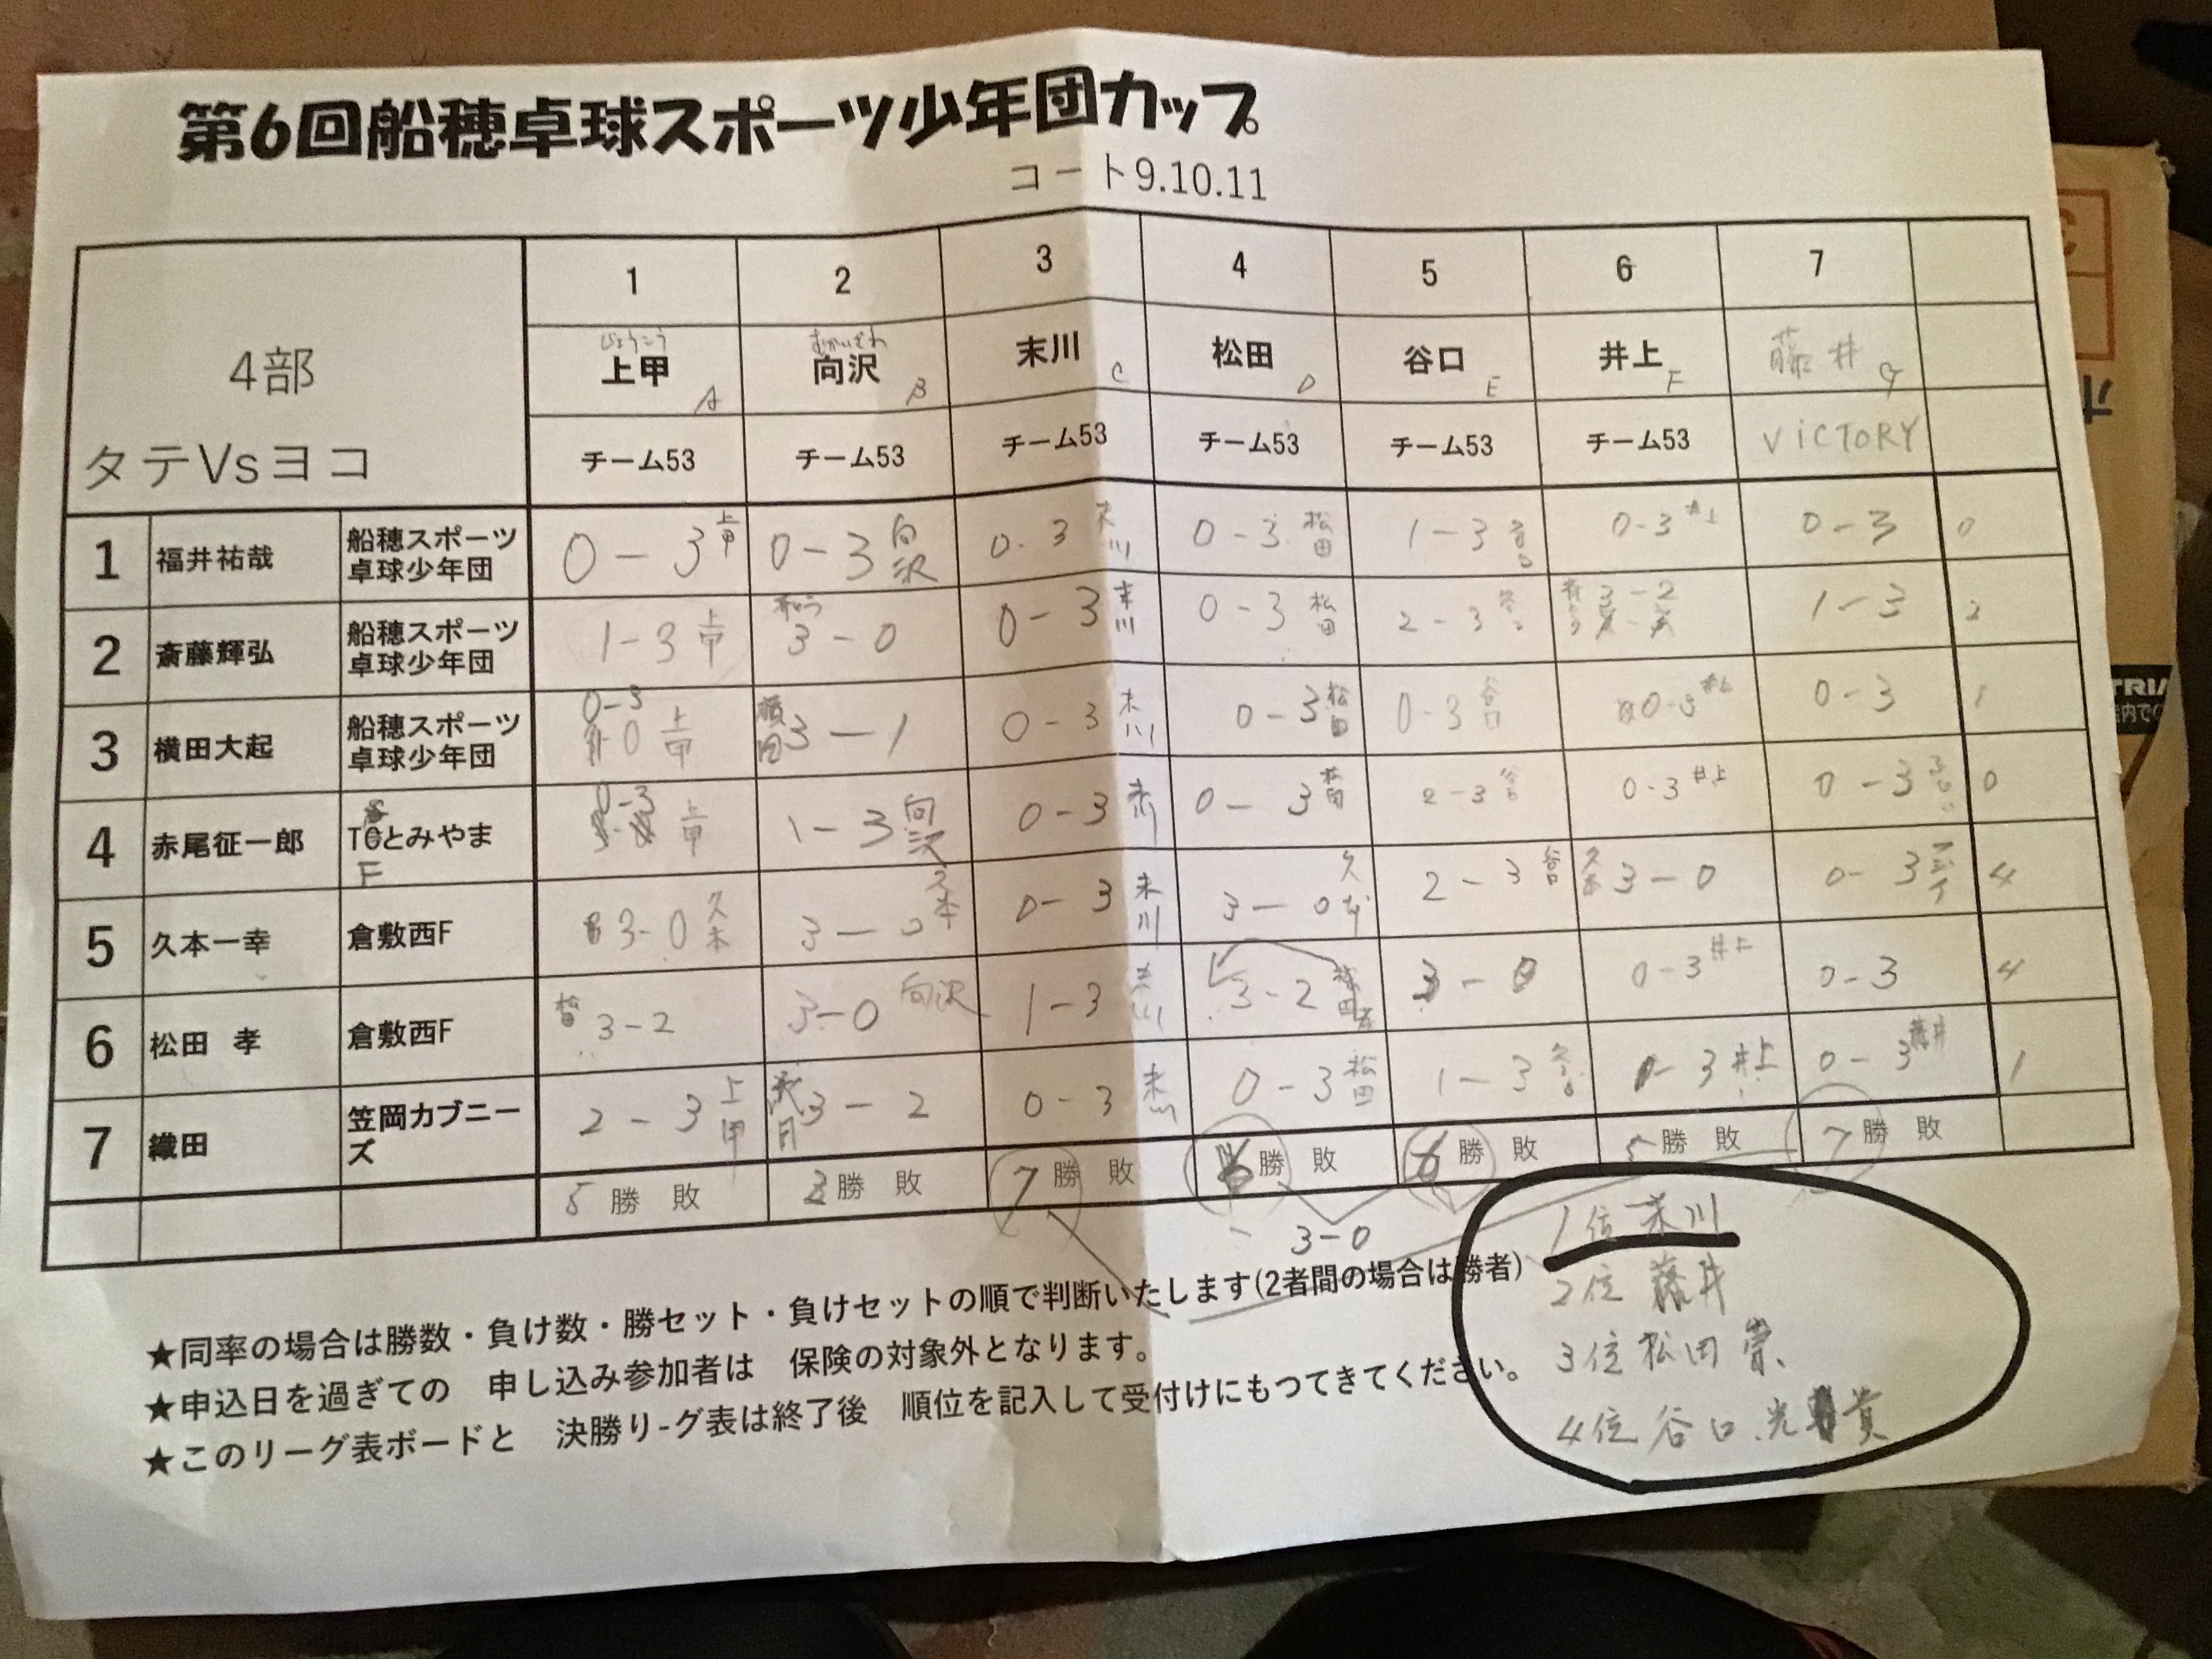 第6回船穂卓球スポーツ少年団カップ
コート9.10.11
4部
タテVsヨコ
1 2 3 4 5 6 7
じょうこう むかいざわ
上甲 A 向沢 B 末川 C 松田 D 谷口 E 井上 F 藤井 G
チーム53 チーム53 チーム53 チーム53 チーム53 チーム53 ViCTORY
1 福井祐哉 船穂スポーツ卓球少年団 0-3 上甲 0-3 向沢 0-3 末川 0-3 松田 1-3 谷口 0-3 井上 0-3 0
2 斎藤輝弘 船穂スポーツ卓球少年団 1-3 上甲 3-0 0-3 末川 0-3 松田 2-3 3-2 1-3 2
3 横田大起 船穂スポーツ卓球少年団 0-3 上甲 横田 3-1 0-3 末川 0-3 松田 0-3 谷口 0-3 井上 0-3 1
4 赤尾征一郎 とみやま 0-3 上甲 1-3 向沢 0-3 末川 0-3 松田 2-3 谷口 0-3 井上 0-3 0
5 久本一幸 倉敷西F 3-0 久本 3-0 久本 0-3 末川 3-0 久本 2-3 谷口 久本 3-0 0-3 フジイ 4
6 松田 孝 倉敷西F 松田 3-2 3-0 向沢 1-3 末川 3-2 松田孝 3-0 0-3 井上 0-3 4
7 織田 笠岡カブニーズ 2-3 上甲 3-2 0-3 末川 0-3 松田 1-3 0-3 井上 0-3 藤井 1
5勝 敗 勝 敗 7勝 敗 勝 敗 6勝 敗 5勝 敗 7勝 敗
3-0
★同率の場合は勝数・負け数・勝セット・負けセットの順で判断いたします(2者間の場合は勝者)
★申込日を過ぎての 申し込み参加者は 保険の対象外となります。
★このリーグ表ボードと 決勝り-グ表は終了後 順位を記入して受付けにもつてきてください。
1位 末川
2位 藤井
3位 松田 崇
4位 谷口 光貴